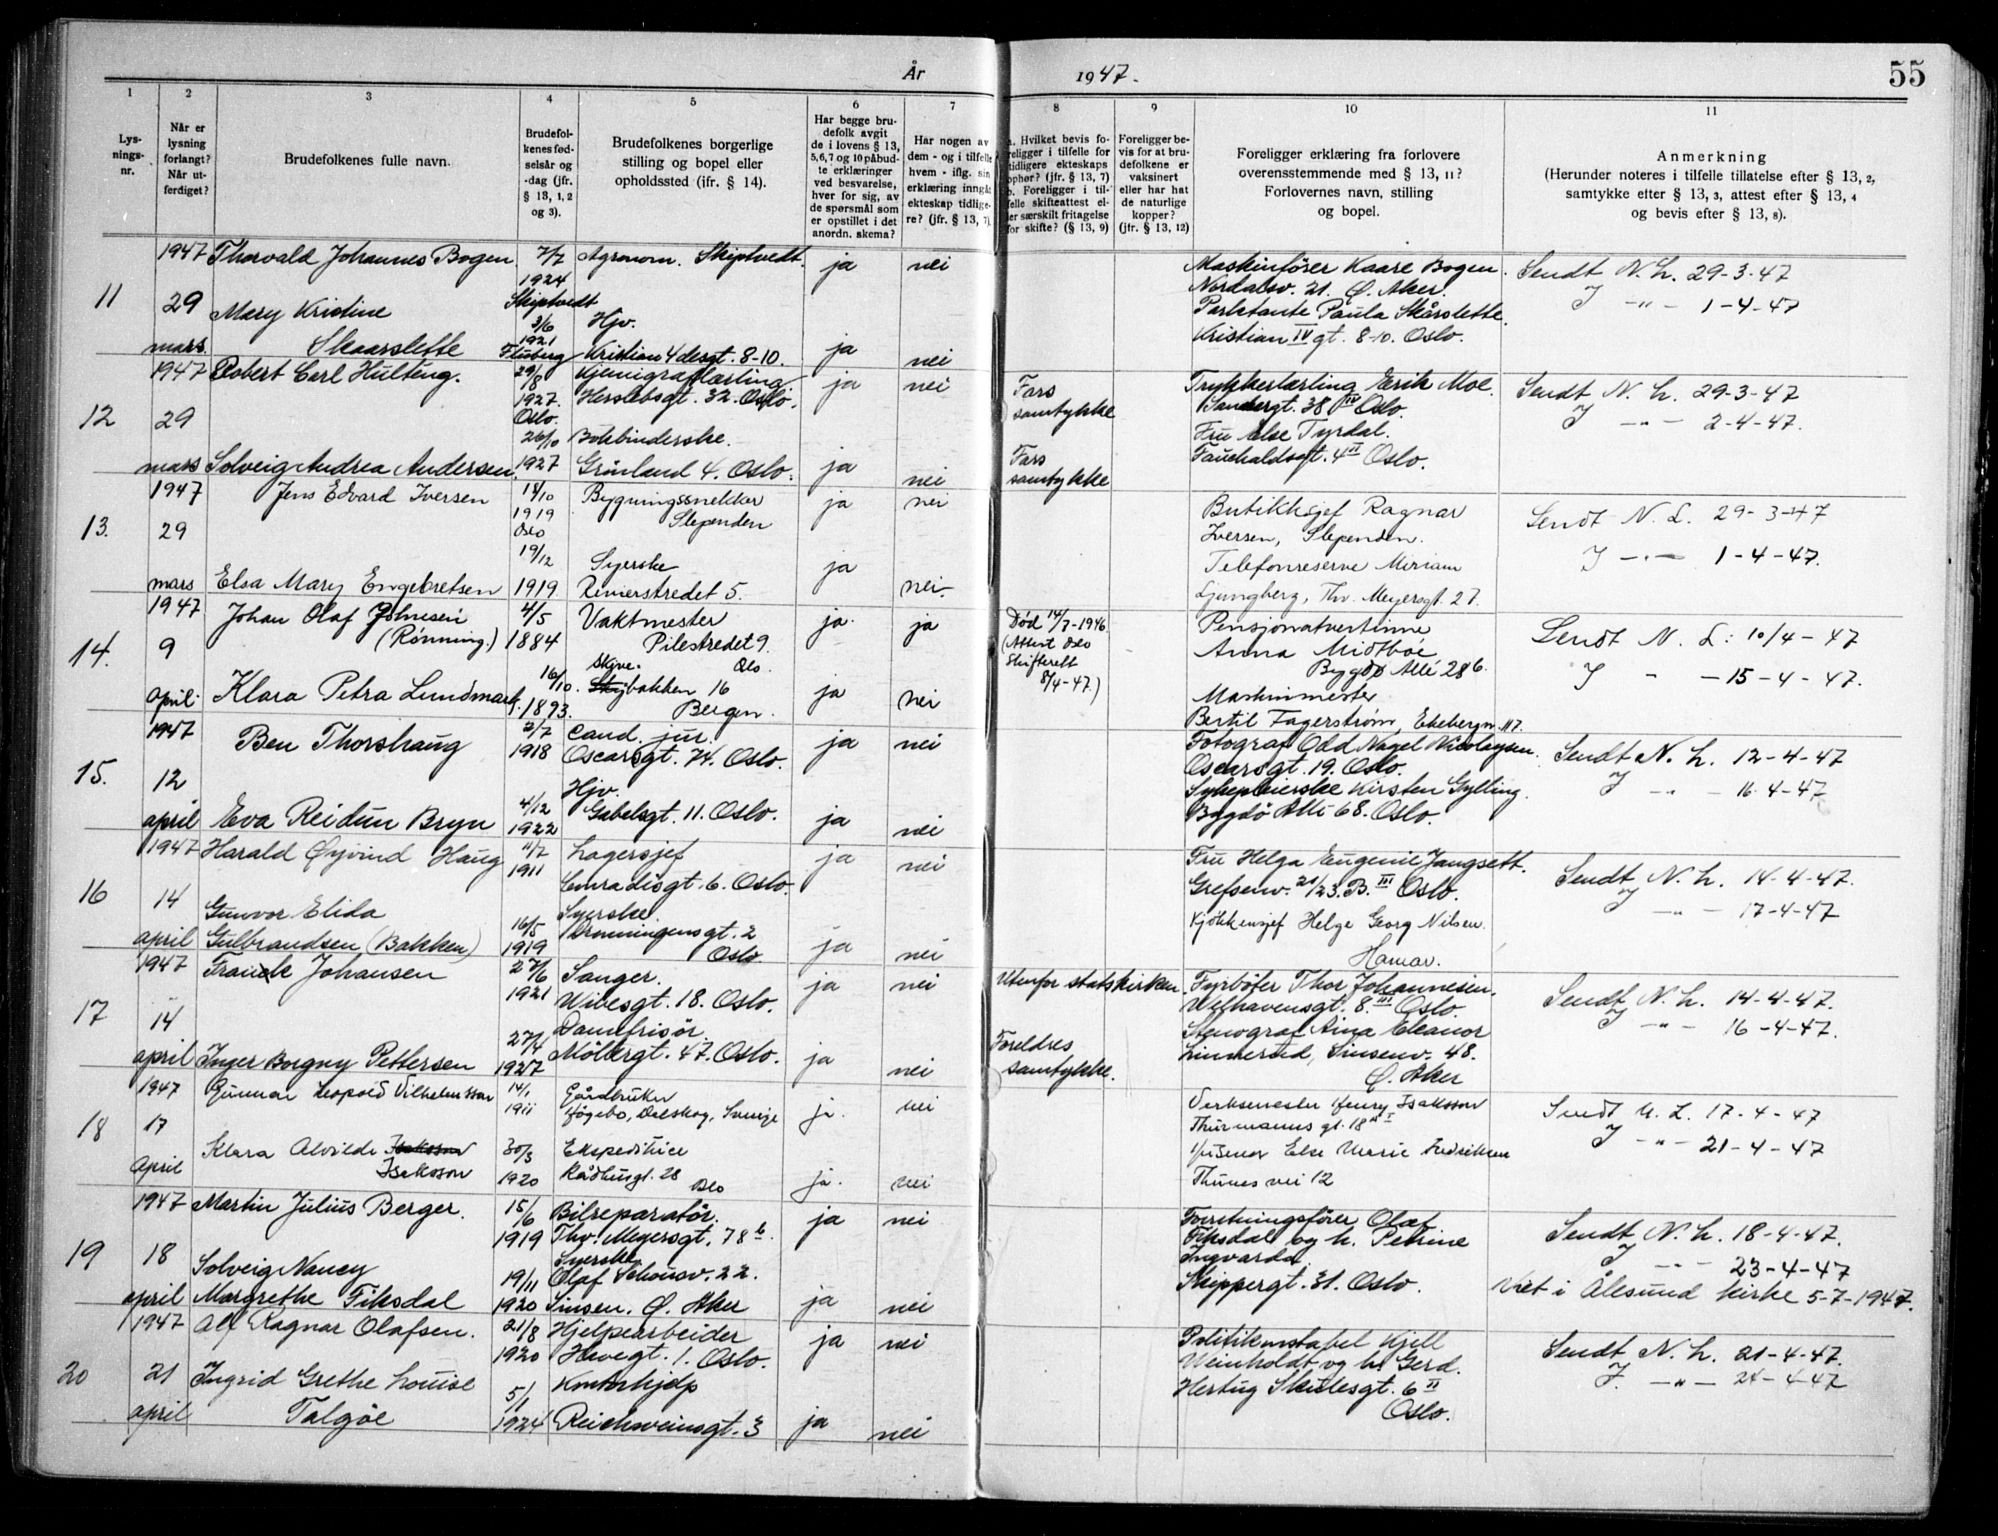 År 1947. 55
1 2 3 4 5 6 7 8 9 10 11
Lys-
nings-
nr.
Når er
lysning
forlangt?
Når ut-
ferdiget?
Brudefolkenes fulle navn.
Brudefol-
kenes fød-
selsår og
-dag (jfr.
§ 13, 1, 2
og 3).
Brudefolkenes borgerlige
stilling og bopel eller
opholdssted (ifr. § 14).
Har begge bru-
defolk avgit
de i lovens § 13,
5,6,7 og 10 påbud-
te erklæringer
ved besvarelse,
hver for sig, av
de spørsmål som
er opstillet i det
anordn. skema?
Har nogen av
dem - og i tilfelle
hvem - iflg. sin
erklæring inngåt
ekteskap tidlige-
re? (jfr. § 13, 7).
a. Hvilket bevis fo-
religger i tilfelle for
tidligere ekteskaps
ophør? (jfr. § 13, 7)
b. Foreligger i til-
felle skifteattest el-
ler særskilt fritagelse
for skifte? (§ 13, 9)
Foreligger be-
vis for at bru-
defolkene er
vaksinert
eller har hat
de naturlige
kopper?
(jfr. § 13, 12)
Foreligger erklæring fra forlovere
overensstemmende med § 13, 11?
Forlovernes navn, stilling
og bopel.
Anmerkning
(Herunder noteres i tilfelle tillatelse efter § 13, 2,
samtykke efter § 13, 3, attest efter § 13, 4
og bevis efter § 13, 8).
11
1947
29
mars
Thorvald Johannes Bogen
7/7
1924
Skiptvedt
Agronom. Skiptvedt.
ja
nei
Mary Kristine
Skaarslette
3/6
1921
Fluberg
Hjv.
Kristian 4desgt. 8-10.
ja
nei
Maskinfører Kaare Bogen.
Nordalsv. 21. Ø. Aker.
Kristian IV gt. 8-10. Oslo.
Sendt N. L. 29-3-47
J -"- 1-4-47
12
1947
29
mars
Robert Carl Hulteng.
29/8
1927.
Oslo.
Herslebsgt. 32. Oslo.
ja
nei
Fars
samtykke
Solveig Andrea Andersen.
26/10
1927
Bokbinderske.
Grønland 4. Oslo.
ja
nei
Fars
samtykke
Trykkerlærling Erik Moe
38 IV Oslo.
Fru Else Tyrdal.
Fauchaldsgt. 4 II Oslo.
Sendt N. L. 29-3-47
J -"- 2-4-47.
13.
1947
29
mars
Jens Edvard Iversen
14/10
1919
Oslo
Bygningssnekker
Slependen
ja
nei
Elsa Mary Engebretsen
19/12
1919
Syerske
Revierstredet 5.
ja
nei
Butikksjef Ragnar
Iversen, Slependen.
Telefonreserve Miriam
Ljungberg, Thv. Meyersgt. 27.
Sendt N. L. 29-3-47
J -"- 1-4-47.
14.
1947
9
april
Johan Olaf Johnsen
(Rønning.)
4/5
1884
Vaktmester
Pilestredet 9.
Oslo.
ja
ja
Død 14/7-1946
(Attest Oslo
Skifterett
8/4-47.)
Klara Petra Lundmark.
16/10.
1893.
bakken 16
Bergen.
ja
nei
Pensjonatvertinne
Anna Midtbøe
Bygdø Alle 28 b.
Maskinmester
Bertil Fagerstrøm, Ekebergv. 117.
Sendt N. L: 10/4-47
J - -15-4-47.
15.
1947
12
april
Ben Thorshaug
2/7
1918
Cand. jur.
Oscarsgt. 74. Oslo.
ja
nei
Eva Reidun Bryn
4/12
1922
Hjv.
Gabelsgt. 11. Oslo.
ja
nei
Fotograf Odd Nagel Nicolaysen.
Oscarsgt. 19. Oslo.
Sykepleierske Kirsten Gylling.
Bygdö Allé 68. Oslo.
Sendt N. L. 12-4-47
J -"- 16-4-47
16
1947
14
april
Harald Øyvind Haug
11/7
1911
Lagersjef
Conradisgt. 6. Oslo.
ja
nei
Gunvor Elida
Gulbrandsen (Bakken)
16/5
1919
Syerske.
Dronningensgt. 2
Oslo
ja
nei
Fru Helga Eugenie Jangsett.
Grefsenv. 21/23. B. III Oslo.
Kjøkkensjef Helge Georg Nilsen.
Hamar.
Sendt N. L. 14-4-47.
J -"- 17-4-47
17
1947
14
april
Franck Johansen
27/6
1921
Sanger.
Wibesgt. 18. Oslo.
ja
nei
Utenfor statskirken.
Inger Borgny Pettersen
27/4
1927
Damefrisör.
Möllergt. 47. Oslo.
ja
nei
Foreldres
samtykke.
Fyrböter Thor Johannesen.
Welhavensgt. 8. III Oslo.
Stenograf Aina Eleanor
Linnerud, Sinsenv. 48.
Ø. Aker
Sendt N. L. 14-4-47.
J -"- 16-4-47.
18
1947
17
april
Gunnar Leopold Vilhelmsson
14/1
1911
Gårdbruker
Högebo, Dalskog, Sverige
ja.
nei
Klara Alvilde Isaksson
Isaksson
30/3
1920
Ekspeditrice
Rådhusgt. 28
Oslo
ja.
nei
Verksmester Henry Isaksson
Thurmanns gt. 18
Else Marie Fredriksen
Thunes vei 12
Sendt N. L. 17-4-47
J -"- 21-4-47
19
1947
18
april
Martin Julius Berger.
15/6
1919
Bilreparatör.
Thv. Meyersgt. 78 b.
ja
nei
Solveig Nancy
Margrethe Fiksdal
19/11
1920
Syerske
Olaf Schousv. 22.
Sinsen. Ø. Aker
ja
nei
Forretningsfører Olaf
Fiksdal og h. Petrine
Ingvarda
Skippergt. 31. Oslo.
Sendt N. L. 18-4-47.
J -"- 23-4-47
Viet i Ålesund kirke 5-7-1947.
20
1947
21
april
Alf Ragnar Olafsen.
21/8
1920
Hjelpearbeider
Havegt. 1. Oslo.
ja
nei
Ingrid Grethe Louise
Talgøe
5/1
1924
Kontorhjelp
Reichweinsgt. 3
ja
nei
Politikonstabel Kjell
Weinholdt og h. Gerd.
Hertug Skulesgt. 6 II
Oslo.
Sendt N. L. 21-4-47.
J. -"- 24-4-47